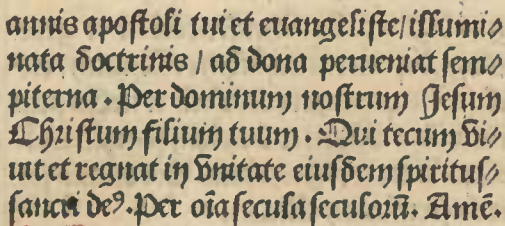 annis apostoli tui et euangeliste/ illumi⸗
nata doctrinis / ad dona perueniat sem⸗
piterna. Per dominum nostrum Jesum
Christum filium tuum. Qui tecum vi⸗
uit et regnat in vnitate eiusdem spiritus⸗
sancti deꝰ. Per oĩa secula seculorũ. Amẽ.